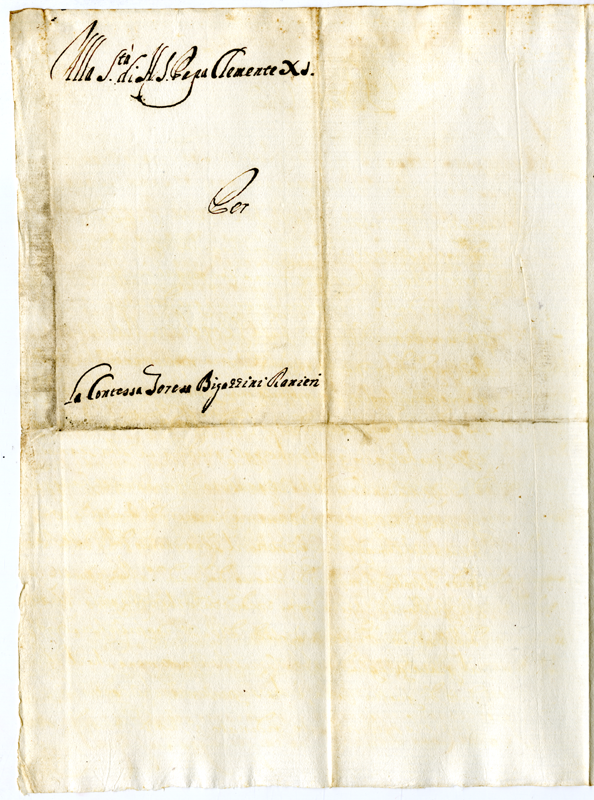 Alla S.tà di N. S. Papa Clemente XI.
Per
La Contessa Teresa Bigazzini Ranieri